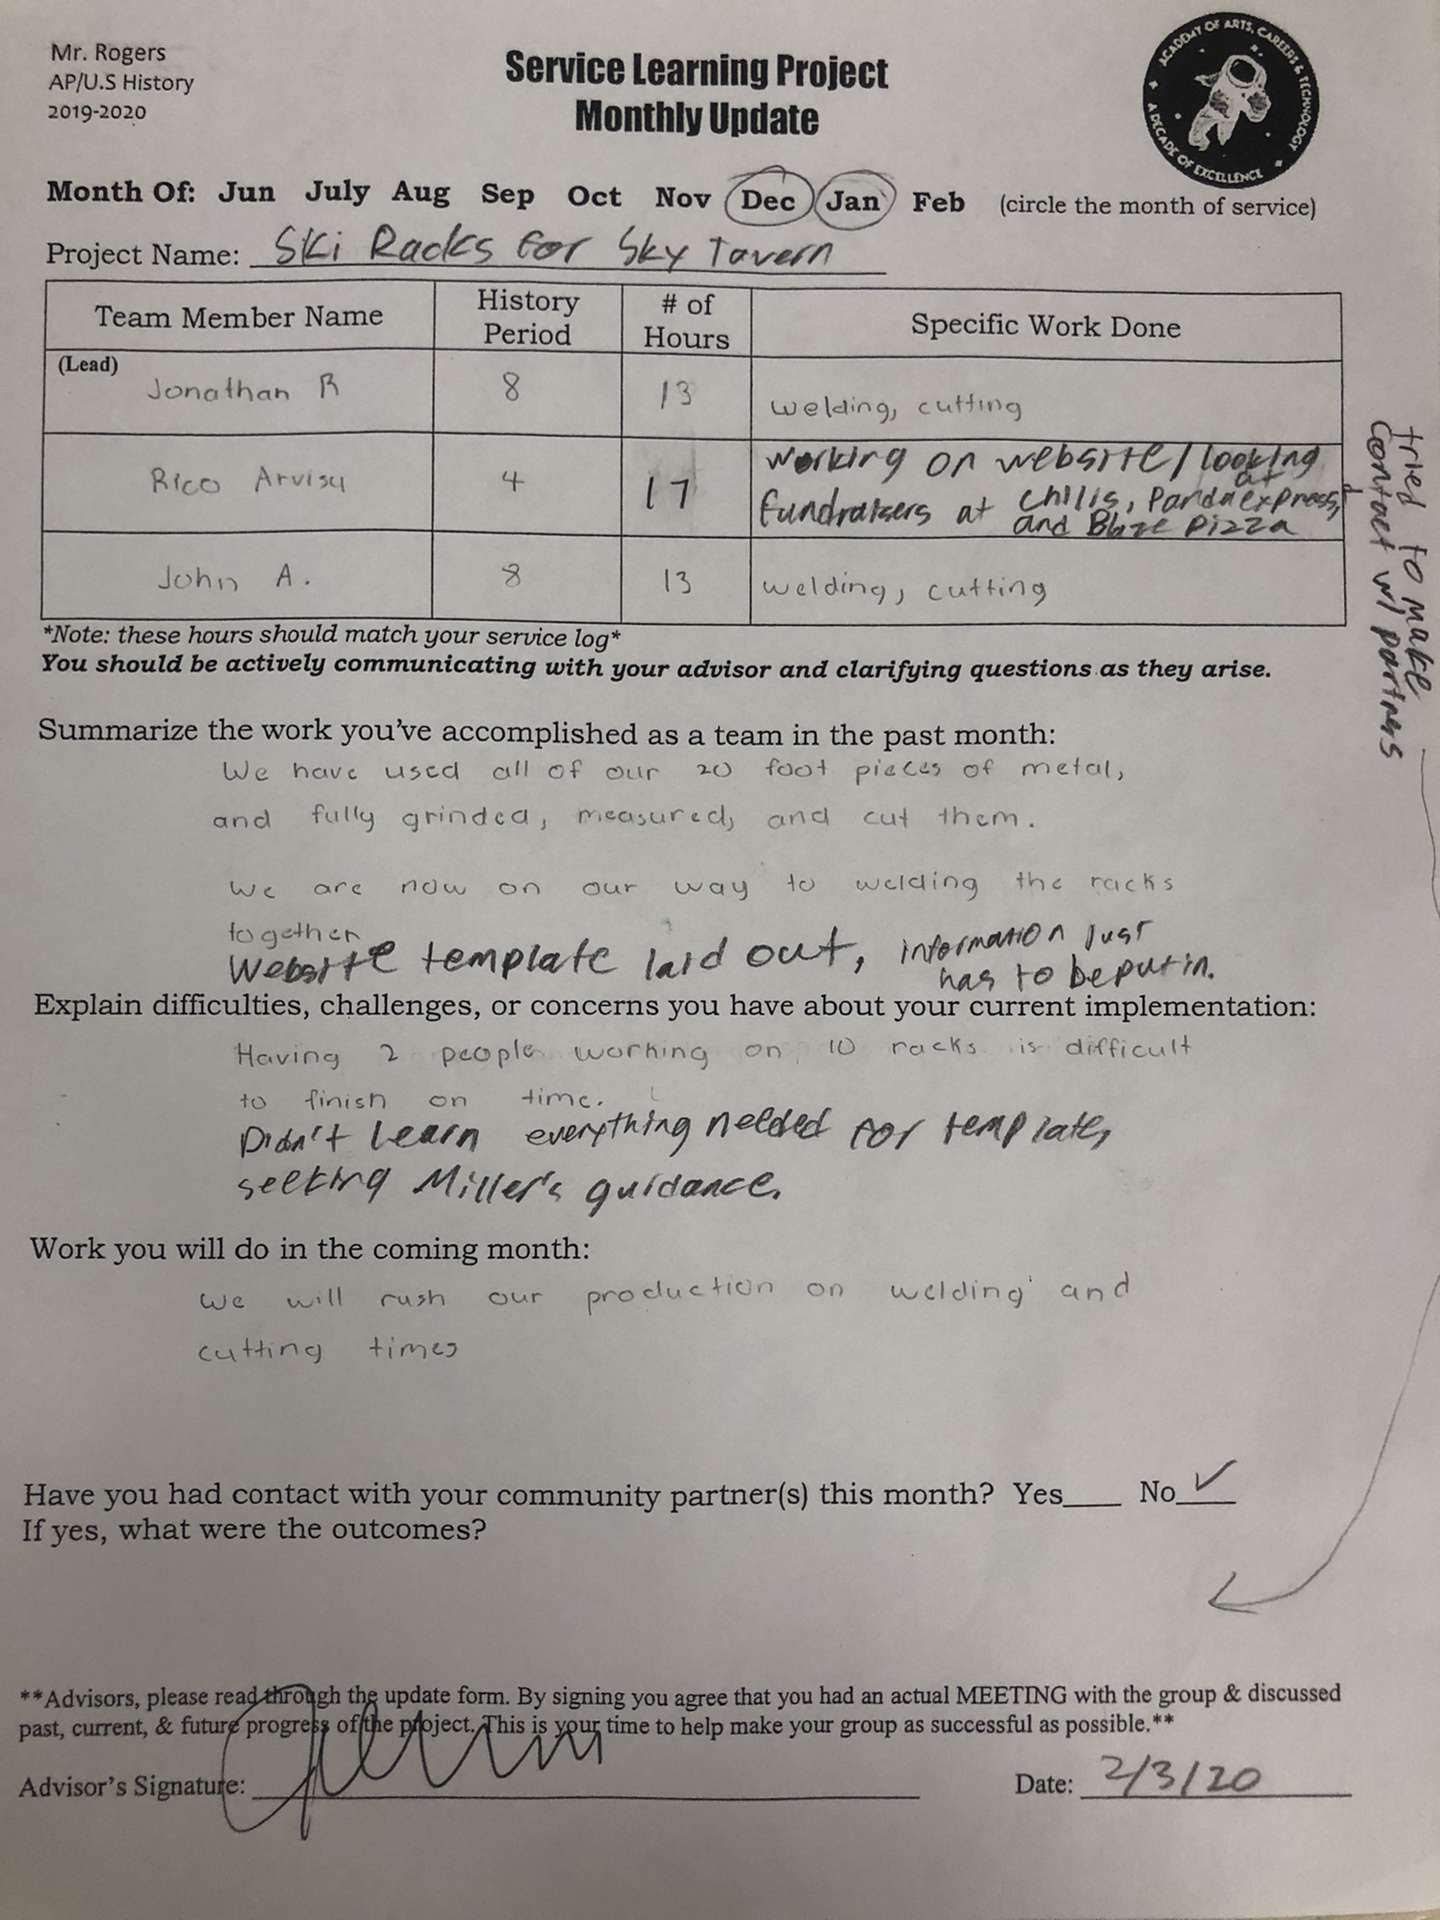 Mr. Rogers
AP/U.S History
2019-2020
Service Learning Project
Monthly Update
ACADEMY OF ARTS, CAREERS & TECHNOLOGY
A DECADE OF EXCELLENCE
Month Of: Jun July Aug Sep Oct Nov Dec Jan Feb (circle the month of service)
Project Name: Ski Racks for Sky Tavern
Team Member Name
History Period
# of Hours
Specific Work Done
(Lead)
Jonathan R
8
13
welding, cutting
Rico Arvisu
4
17
working on website/looking at
fundraisers at Chilis, Panda express,
and Blaze Pizza
John A.
8
13
welding, cutting
tried to make
contact w/ partners
*Note: these hours should match your service log*
You should be actively communicating with your advisor and clarifying questions as they arise.
Summarize the work you've accomplished as a team in the past month:
We have used all of our 20 foot pieces of metal,
and fully grinded, measured, and cut them.
We are now on our way to welding the racks
together
Website template laid out, information just
has to be put in.
Explain difficulties, challenges, or concerns you have about your current implementation:
Having 2 people working on 10 racks is difficult
to finish on time.
Didn't learn everything needed for template,
seeking Miller's guidance.
Work you will do in the coming month:
We will rush our production on welding and
cutting times
Have you had contact with your community partner(s) this month? Yes____ No ✓
If yes, what were the outcomes?
**Advisors, please read through the update form. By signing you agree that you had an actual MEETING with the group & discussed
past, current, & future progress of the project. This is your time to help make your group as successful as possible.**
Advisor's Signature:
Date: 2/3/20